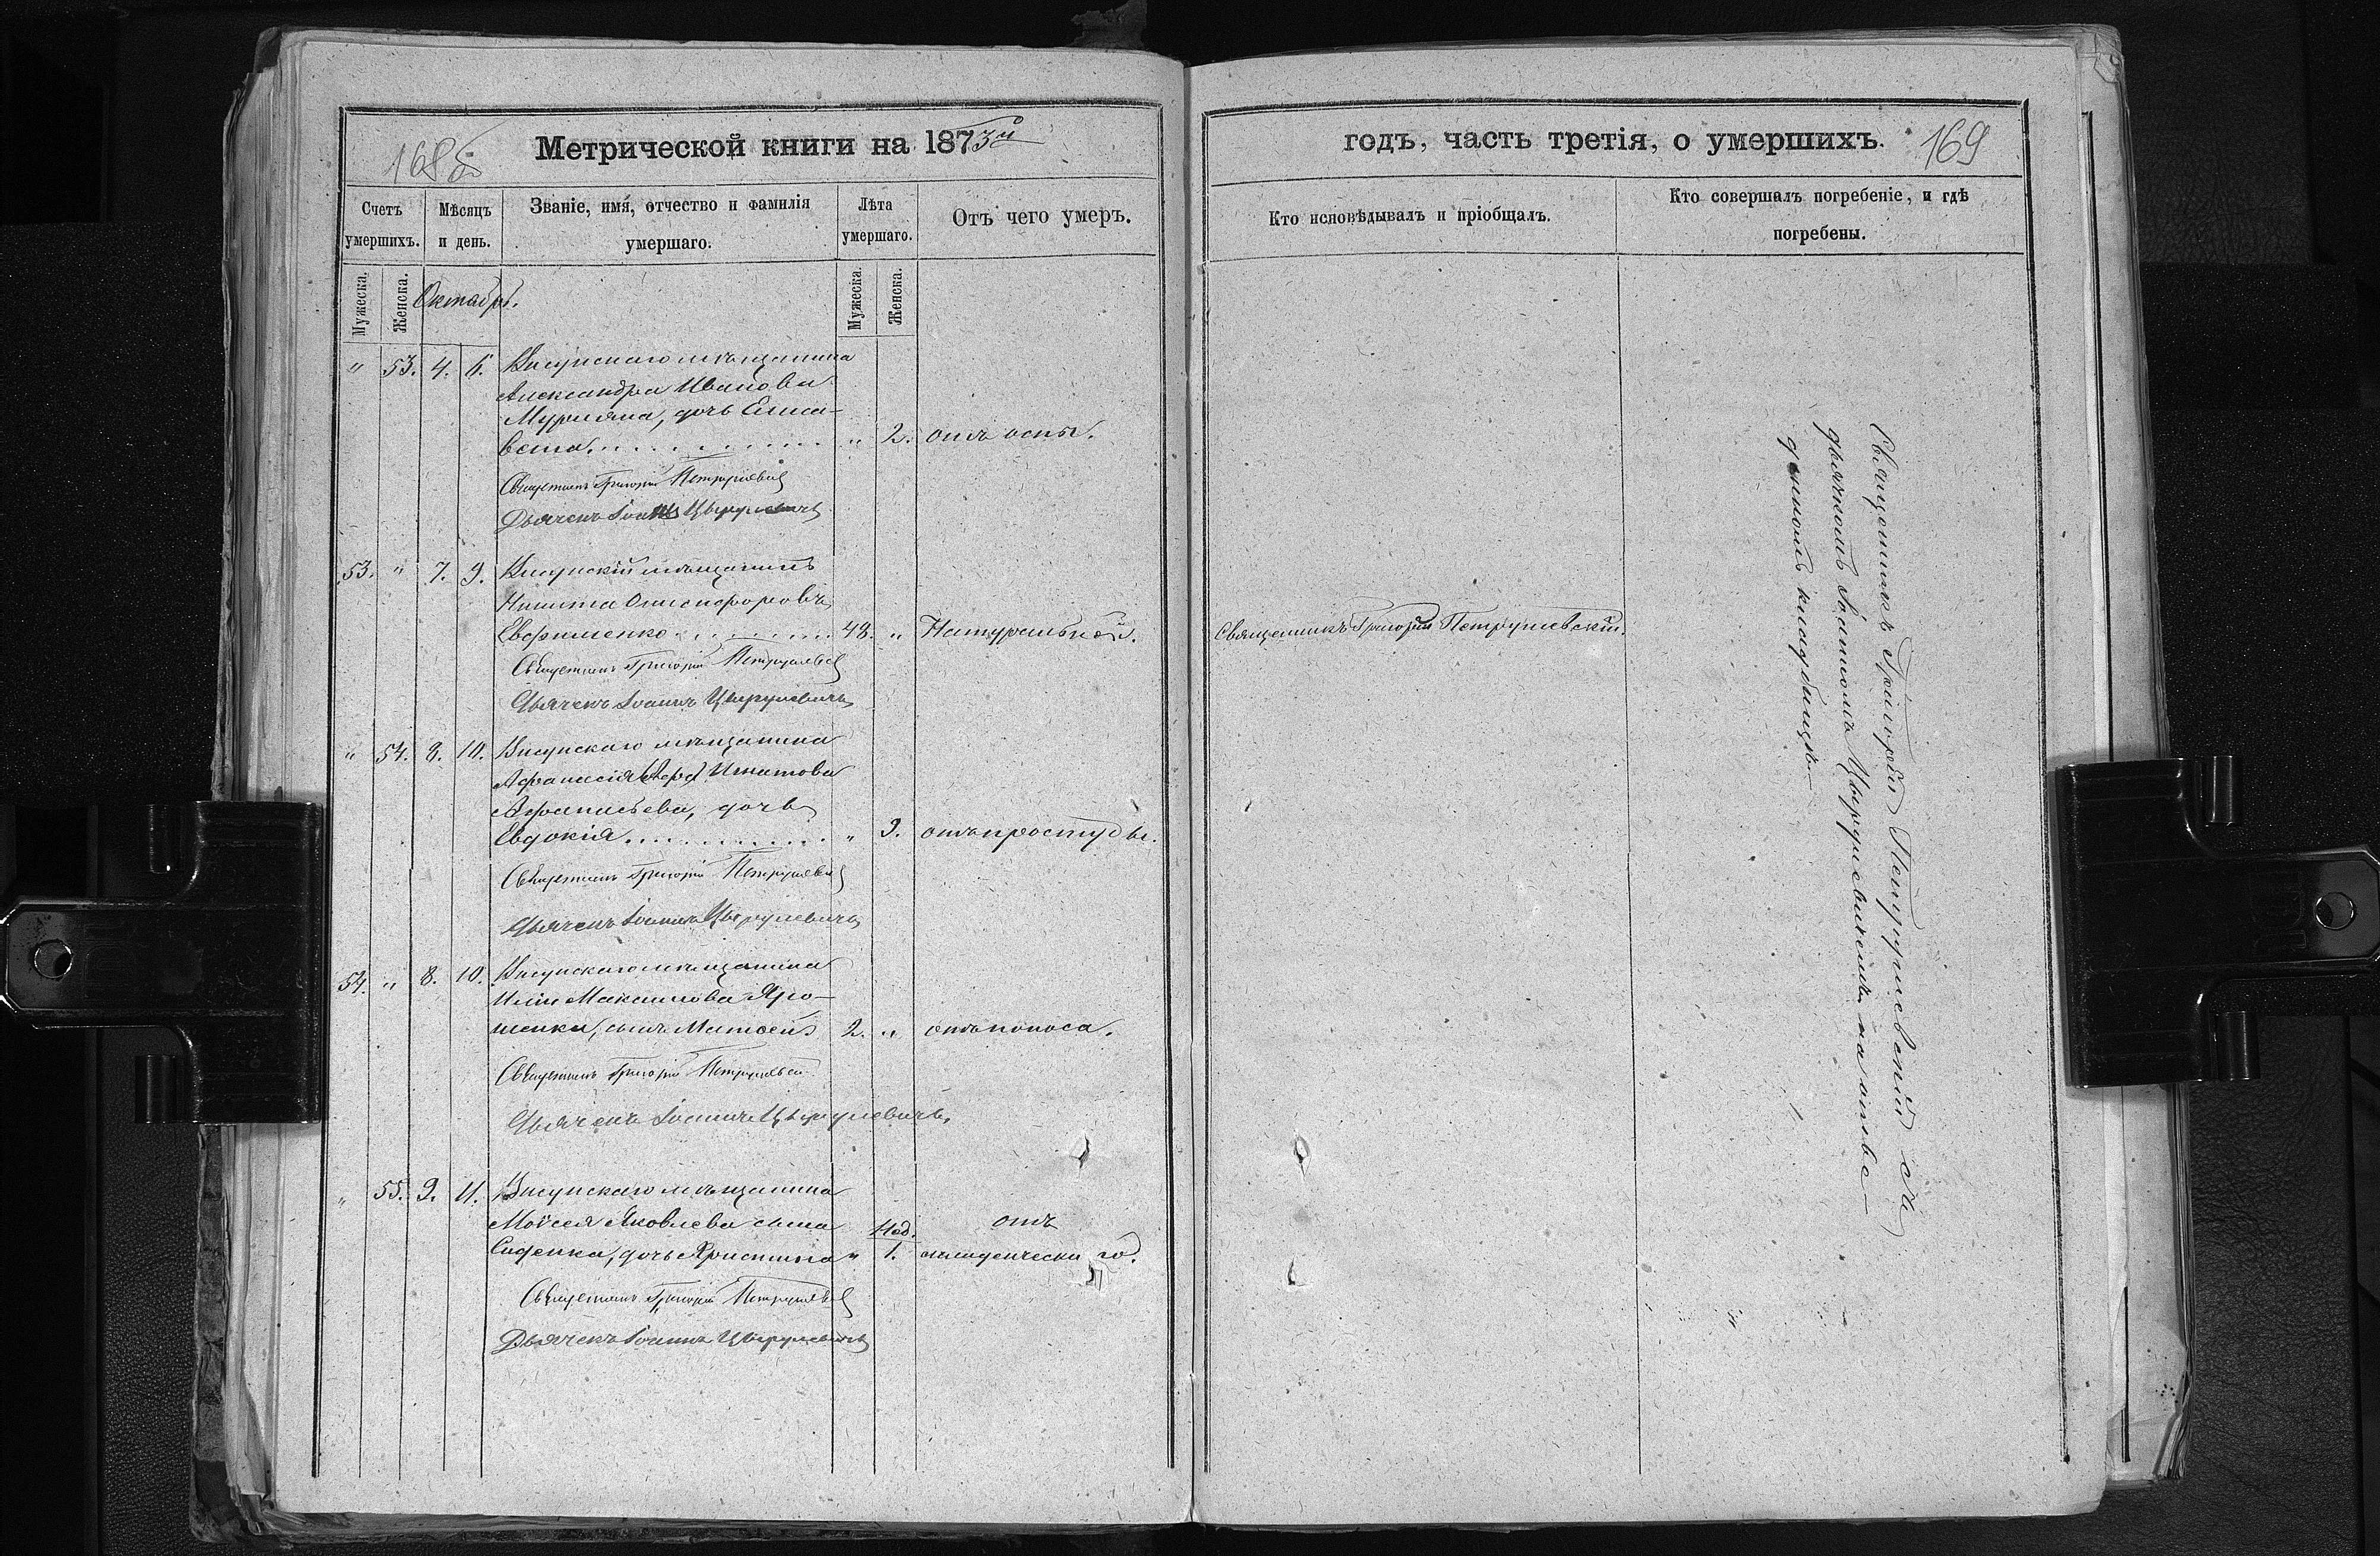 168 об
Метрической книги на 1873й
Счетъ умершихъ.
Мѣсяцъ и день.
Званіе, имя, отчество и фамилія умершаго.
Лѣта умершаго.
Отъ чего умеръ.
Мужеска.
Женска.
Октябрь.
Мужеска.
Женска.
" 53. 4. 6. Висунскаго мѣщанина
Александра Иванова
Мурляна, дочь Елиса-
вета. " 2. отъ оспы.
Священникъ Григорій Петрушевскій
Дьячекъ Іоаннъ Цырулевичъ
53. " 7. 9. Висунскій мѣщанинъ
Никита Онисифоровъ
Ефименко 48. " Натуральной.
Священникъ Григорій Петрушевскій
Дьячекъ Іоаннъ Цырулевичъ
" 54. 8. 10. Висунскаго мѣщанина
Афанасія Игнатова
Афанасьева, дочь
Евдокія " 9. отъ простуды.
Священникъ Григорій Петрушевскій
Дьячекъ Іоаннъ Цырулевичъ
54. " 8. 10. Висунскаго мѣщанина
Иліи Максимова Яро-
шенка, сынъ Матѳей 2. " отъ поноса.
Священникъ Григорій Петрушевскій
Дьячекъ Іоаннъ Цырулевичъ.
" 55. 9. 11. Висунскаго мѣщанина
Моисея Яковлева сына Нед. отъ
Сиденка, дочь Христина " 1. младенческаго.
Священникъ Григорій Петрушевскій
Дьячекъ Іоаннъ Цырулевичъ
годъ, часть третія, о умершихъ.
169
Кто исповѣдывалъ и пріобщалъ.
Кто совершалъ погребеніе, и гдѣ погребены.
Священникъ Григорій Петрушевскій.
Священникъ Григорій Петрушевскій съ
дьячкомъ Іоанномъ Цырулевичемъ на отве-
денномъ кладбищѣ